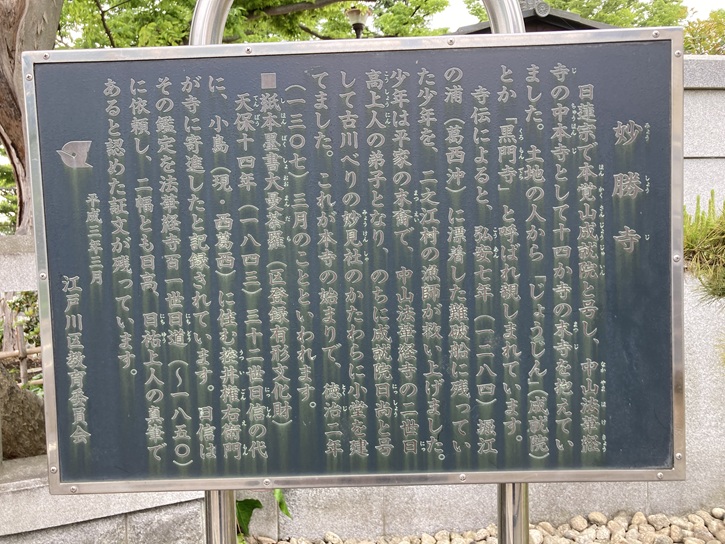 妙勝寺
みょうしょうじ
日蓮宗で本覚山成就院と号し、中山法華経
寺の中本寺として十四か寺の末寺を抱えてい
ました。土地の人から「じょうしん」(成就院)
とか「黒門寺」と呼ばれ親しまれています。
寺伝によると、弘安七年(一二八四)堀江
の浦(葛西沖)に漂着した難破船に残ってい
た少年を、二之江村の漁師が救い上げました。
少年は平家の末裔で、中山法華経寺の二世日
高上人の弟子となり、のちに成就院日尚と号
して古川べりの妙見社のかたわらに小堂を建
てました。これが本寺の始まりで、徳治二年
(一三〇七)三月のことといわれます。
■紙本墨書大曼荼羅(区登録有形文化財)
天保十四年(一八四三)三十二世日信の代
に、小島(現・西葛西)に住む 井権右衛門
が寺に寄進したと記録されています。日信は
その鑑定を法華経寺百一世日道(〜一八五〇)
に依頼し、二幅とも日高、日祐上人の真筆で
あると認めた証文が残っています。
平成三年三月
江戸川区教育委員会